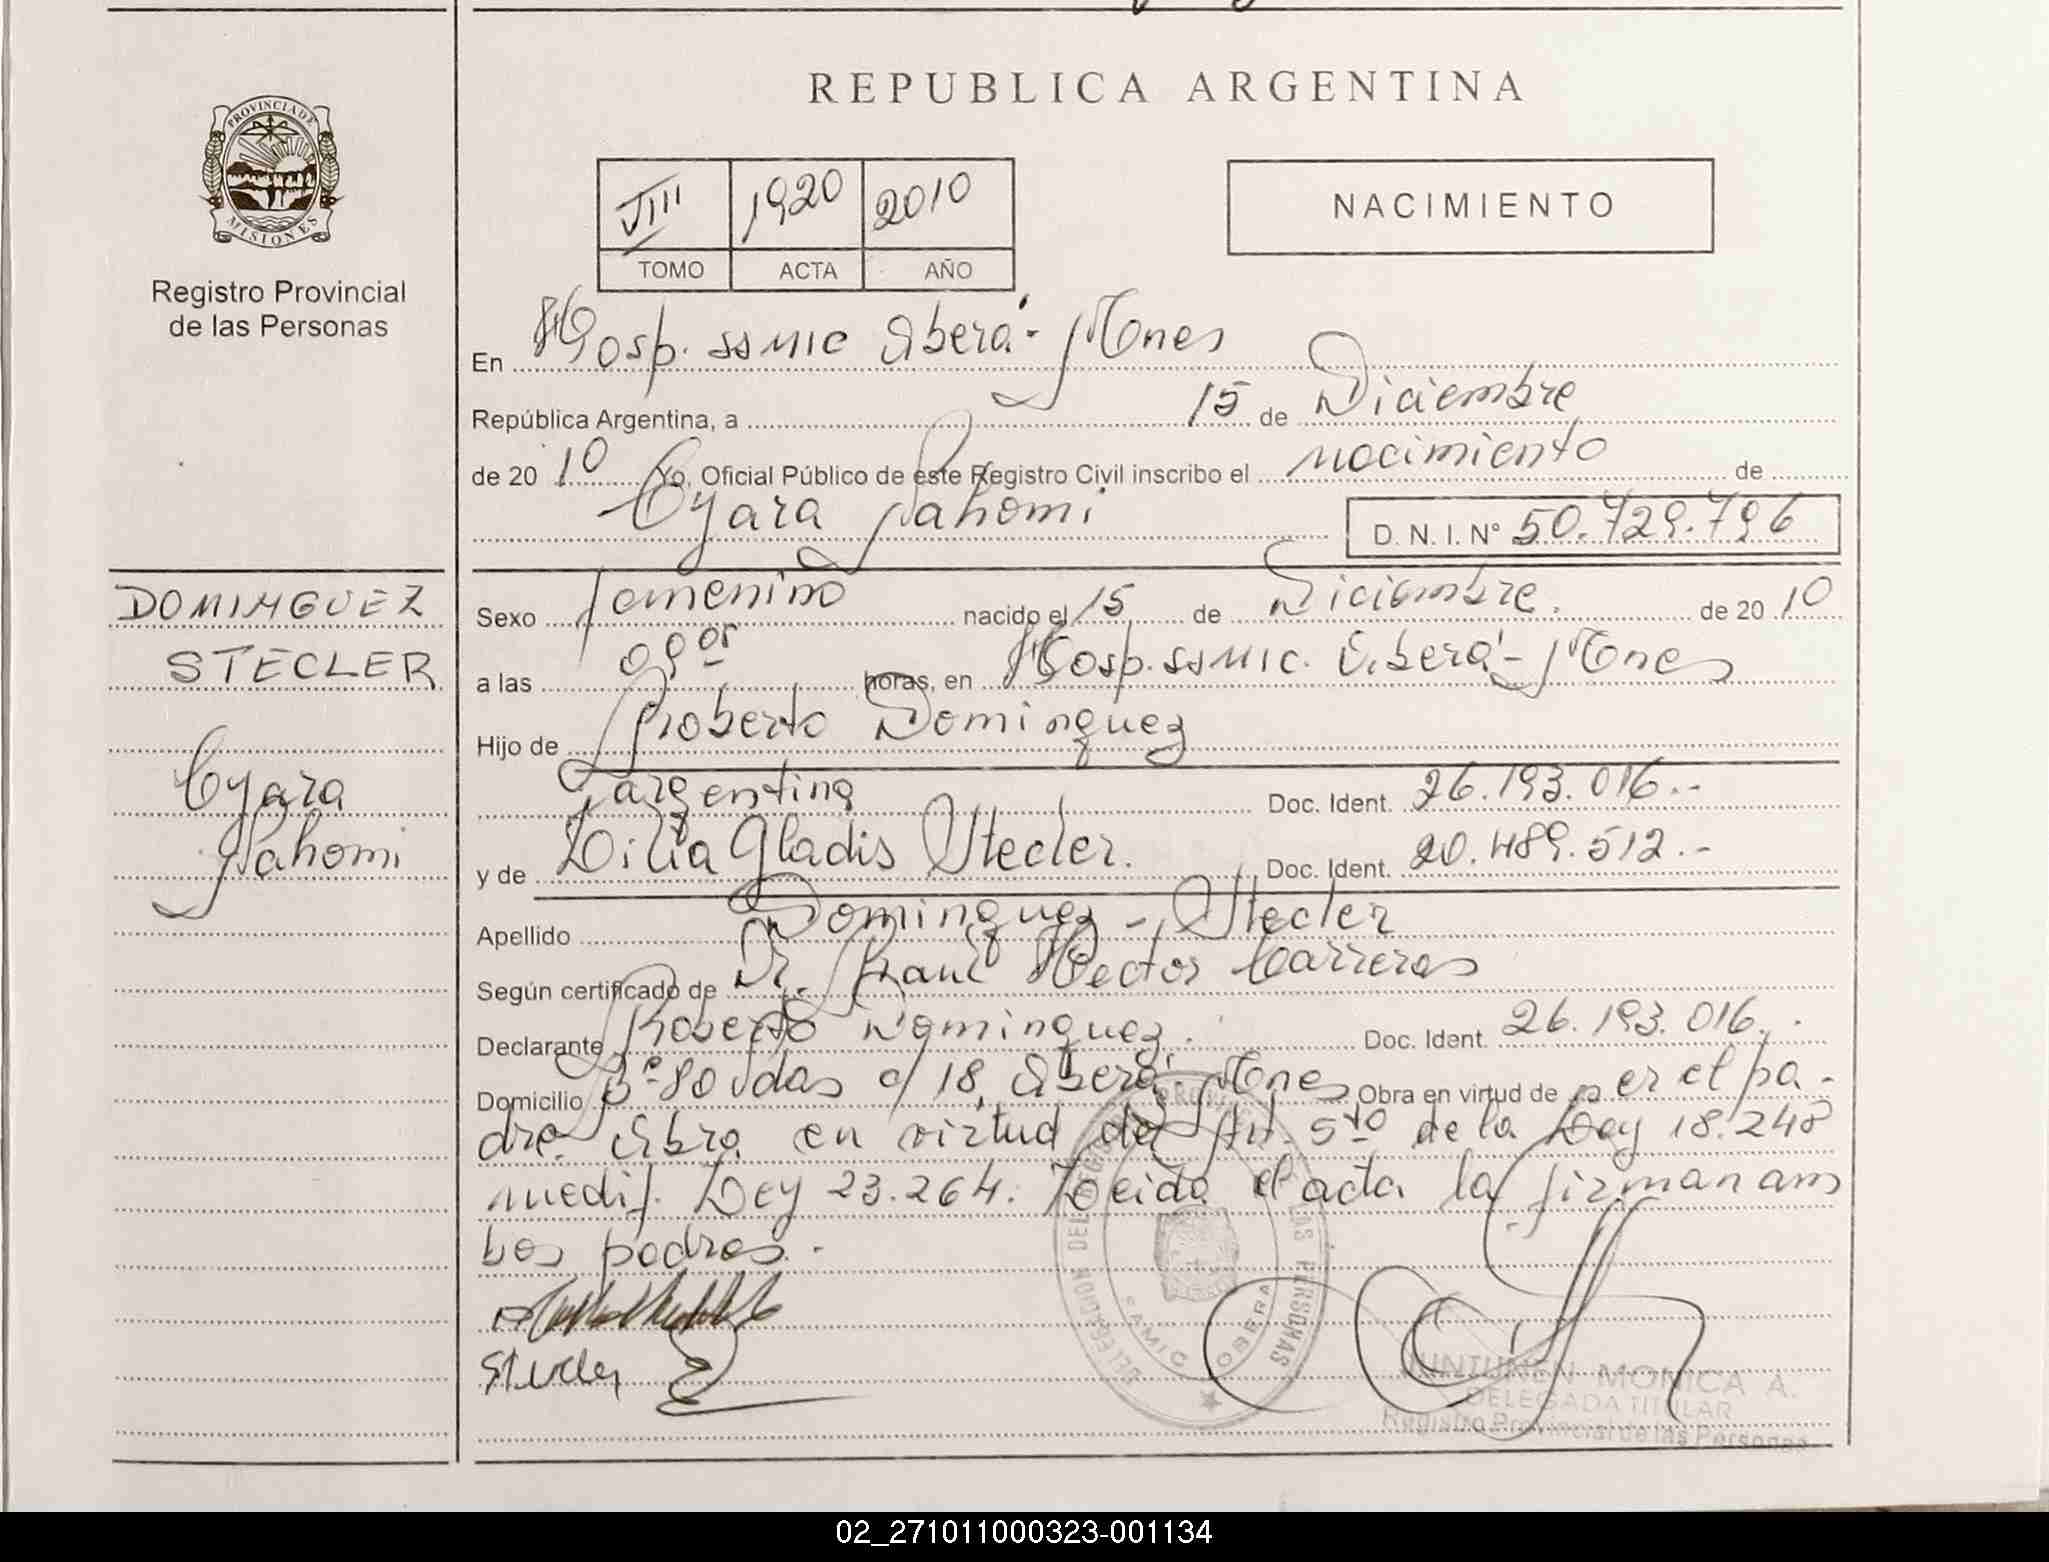 REPUBLICA ARGENTINA
PROVINCIA DE
MISIONES
Registro Provincial
de las Personas
VIII 1920 2010
TOMO ACTA AÑO
NACIMIENTO
En Hosp. SAMIC Oberá - Mnes
República Argentina, a 15 de Diciembre
de 2010 Yo, Oficial Público de este Registro Civil inscribo el nacimiento de
Cyara Nahomi D. N. I. Nº 50.729.796
DOMINGUEZ
STECLER
Cyara
Nahomi
Sexo femenino nacido el 15 de Diciembre. de 2010
a las 09 05 horas, en Hosp. SAMIC. Oberá - Mnes
Hijo de Roberto Dominguez
argentina Doc. Ident. 26.193.016.-
y de Lilia Gladis Stecler. Doc. Ident. 20.489.512.-
Apellido Dominguez - Stecler
Según certificado de Dr. Raul Hector Carreras
Declarante Roberto Dominguez. Doc. Ident. 26.193.016.
Domicilio Bº 80 Vdas c/ 18, Oberá - Mnes Obra en virtud de ser el pa-
dre. Obra en virtud del Art. 5to de la Ley 18.248
modif. Ley 23.264. Leida el acta la firman am
bos padres.-
Stecler
DELEGACION DEL REGISTRO PROVINCIAL DE LAS PERSONAS
SAMIC OBERA
JUNTUNEN MONICA A.
DELEGADA TITULAR
Registro Provincial de las Personas
02_271011000323-001134